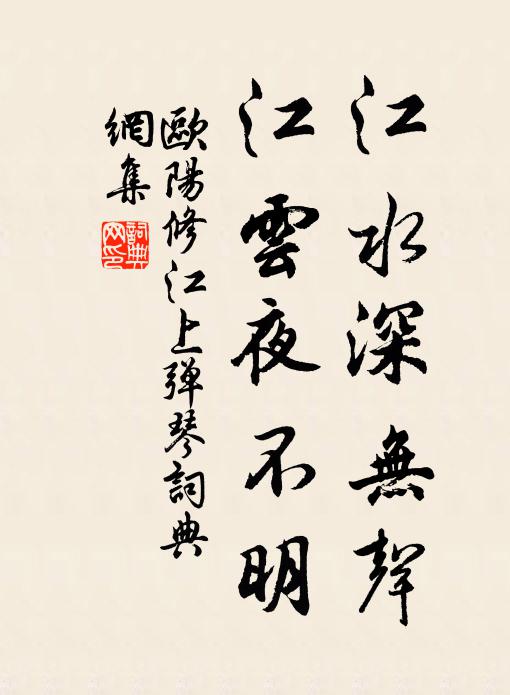 江水深無聲
江雲夜不明
歐陽修江上弹琴詞典
網集
詞典网印